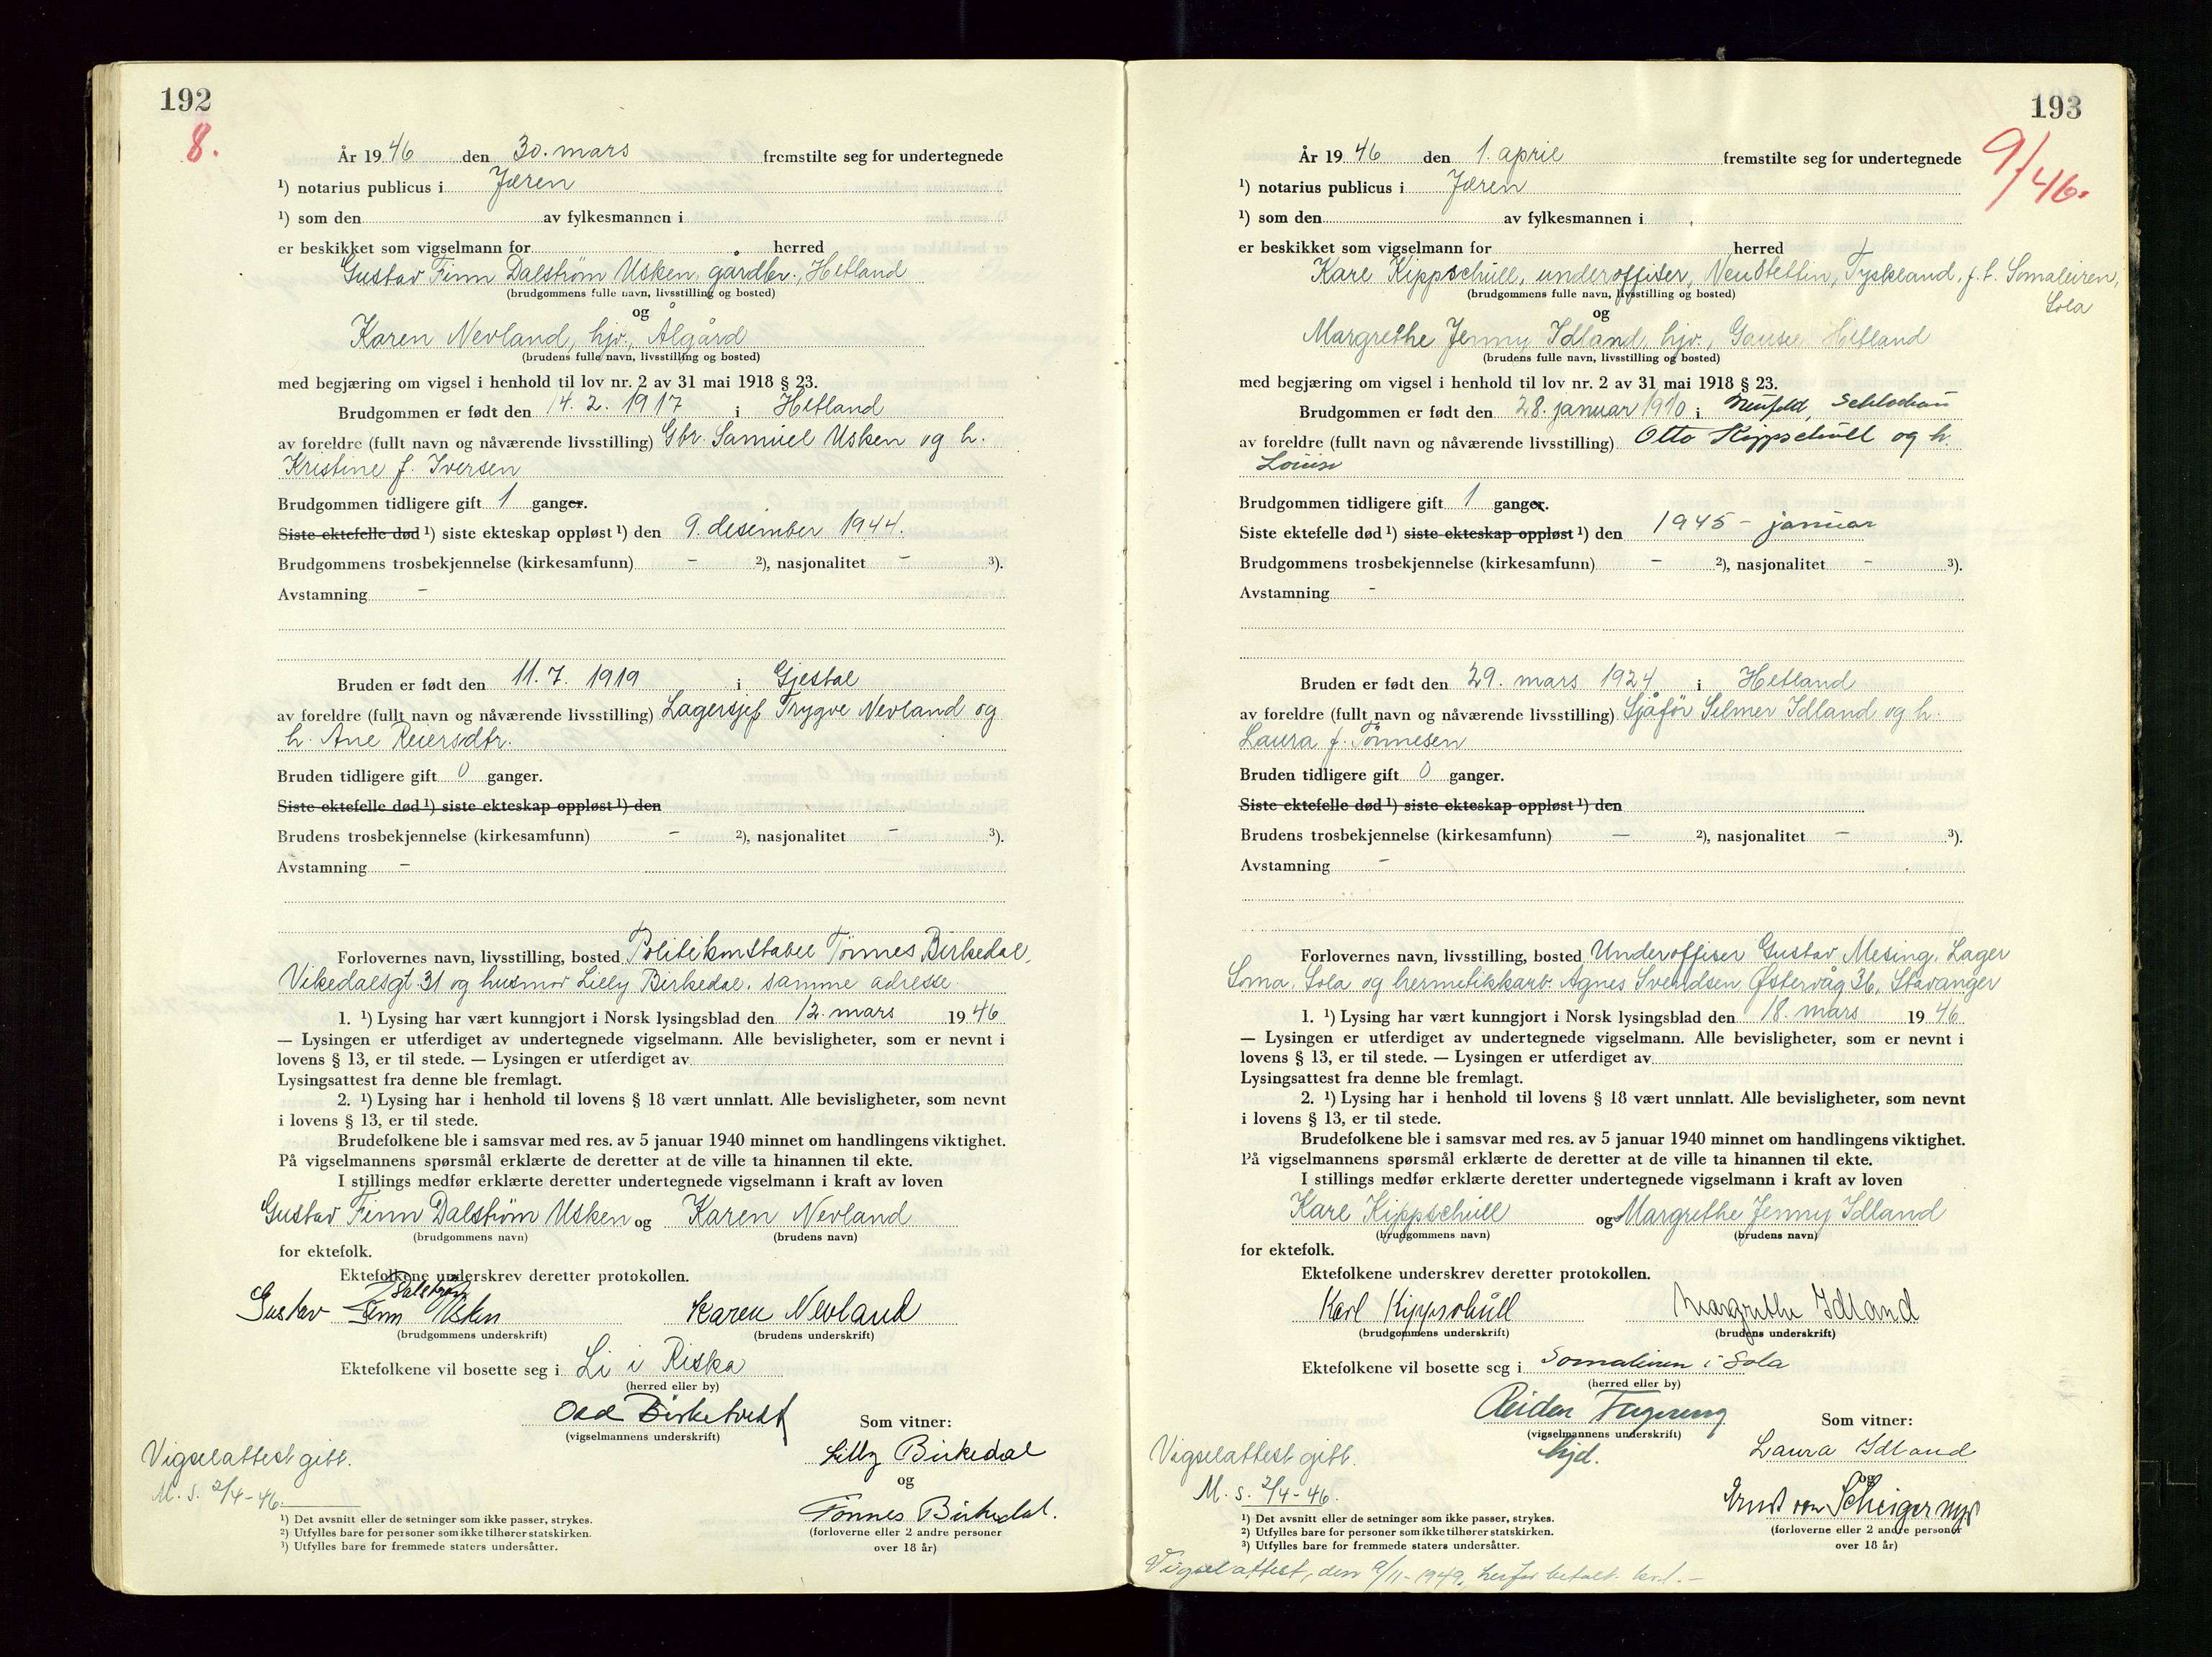 192
8.
År 1946 den 30. mars fremstilte seg for undertegnede
¹) notarius publicus i Jæren
¹) som den av fylkesmannen i
er beskikket som vigselmann for herred
Gustav Finn Dalstrøm Usken, gårdbr., Hetland
(brudgommens fulle navn, livsstilling og bosted)
og
Karen Nevland, hjv., Ålgård
(brudens fulle navn, livsstilling og bosted)
med begjæring om vigsel i henhold til lov nr. 2 av 31 mai 1918 § 23.
Brudgommen er født den 14. 2. 1917 i Hetland
av foreldre (fullt navn og nåværende livsstilling) Gbr. Samuel Usken og h.
Kristine f. Iversen
Brudgommen tidligere gift 1 ganger.
Siste ektefelle død ¹) siste ekteskap oppløst ¹) den 9. desember 1944.
Brudgommens trosbekjennelse (kirkesamfunn) – ²), nasjonalitet – ³).
Avstamning –
Bruden er født den 11. 7. 1919 i Gjestal
av foreldre (fullt navn og nåværende livsstilling) Lagersjef Trygve Nevland og
h. Ane Reiersdtr.
Bruden tidligere gift 0 ganger.
Siste ektefelle død ¹) siste ekteskap oppløst ¹) den
Brudens trosbekjennelse (kirkesamfunn) – ²), nasjonalitet – ³).
Avstamning –
Forlovernes navn, livsstilling, bosted Politikonstabel Tönnes Birkedal,
Vikedalsgt. 31 og husmor Lilly Birkedal, samme adresse.
1. ¹) Lysing har vært kunngjort i Norsk lysingsblad den 12. mars 1946
— Lysingen er utferdiget av undertegnede vigselmann. Alle bevisligheter, som er nevnt i
lovens § 13, er til stede. — Lysingen er utferdiget av
Lysingsattest fra denne ble fremlagt.
2. ¹) Lysing har i henhold til lovens § 18 vært unnlatt. Alle bevisligheter, som nevnt
i lovens § 13, er til stede.
Brudefolkene ble i samsvar med res. av 5 januar 1940 minnet om handlingens viktighet.
På vigselmannens spørsmål erklærte de deretter at de ville ta hinannen til ekte.
I stillings medfør erklærte deretter undertegnede vigselmann i kraft av loven
Gustav Finn Dalstrøm Usken og Karen Nevland
(brudgommens navn) (brudens navn)
for ektefolk.
Ektefolkene underskrev deretter protokollen.
Dalstrøm
Gustav Finn Usken Karen Nevland
(brudgommens underskrift) (brudens underskrift)
Ektefolkene vil bosette seg i Li i Riska
(herred eller by)
Odd Birketvedt
(vigselmannens underskrift)
Som vitner:
Lilly Birkedal
og
Tönnes Birkedal.
(forloverne eller 2 andre personer
over 18 år)
Vigselattest gitt.
M. S. 2/4-46.
¹) Det avsnitt eller de setninger som ikke passer, strykes.
²) Utfylles bare for personer som ikke tilhører statskirken.
³) Utfylles bare for fremmede staters undersåtter.
193
9/46.
År 1946 den 1. april fremstilte seg for undertegnede
¹) notarius publicus i Jæren
¹) som den av fylkesmannen i
er beskikket som vigselmann for herred
Karl Kippschull, underoffiser, Neu Stettin, Tyskland, f. t. Somaleiren,
Sola
(brudgommens fulle navn, livsstilling og bosted)
og
Margrethe Jenny Idland, hjv., Gausel Hetland
(brudens fulle navn, livsstilling og bosted)
med begjæring om vigsel i henhold til lov nr. 2 av 31 mai 1918 § 23.
Brudgommen er født den 28. januar 1910 i Neufeld, Schlochau
av foreldre (fullt navn og nåværende livsstilling) Otto Kippschull og h.
Louise
Brudgommen tidligere gift 1 ganger.
Siste ektefelle død ¹) siste ekteskap oppløst ¹) den 1945 - januar
Brudgommens trosbekjennelse (kirkesamfunn) – ²), nasjonalitet – ³).
Avstamning –
Bruden er født den 29. mars 1924 i Hetland
av foreldre (fullt navn og nåværende livsstilling) Sjåfør Selmer Idland og h.
Laura f. Tönnesen
Bruden tidligere gift 0 ganger.
Siste ektefelle død ¹) siste ekteskap oppløst ¹) den
Brudens trosbekjennelse (kirkesamfunn) – ²), nasjonalitet – ³).
Avstamning –
Forlovernes navn, livsstilling, bosted Underoffiser Gustav Mesing, Lager
Soma, Sola og hermetikkarb. Agnes Svendsen Østervåg 36, Stavanger
1. ¹) Lysing har vært kunngjort i Norsk lysingsblad den 18. mars 1946
— Lysingen er utferdiget av undertegnede vigselmann. Alle bevisligheter, som er nevnt i
lovens § 13, er til stede. — Lysingen er utferdiget av
Lysingsattest fra denne ble fremlagt.
2. ¹) Lysing har i henhold til lovens § 18 vært unnlatt. Alle bevisligheter, som nevnt
i lovens § 13, er til stede.
Brudefolkene ble i samsvar med res. av 5 januar 1940 minnet om handlingens viktighet.
På vigselmannens spørsmål erklærte de deretter at de ville ta hinannen til ekte.
I stillings medfør erklærte deretter undertegnede vigselmann i kraft av loven
Karl Kippschull og Margrethe Jenny Idland
(brudgommens navn) (brudens navn)
for ektefolk.
Ektefolkene underskrev deretter protokollen.
Karl Kippschull Margrethe Idland
(brudgommens underskrift) (brudens underskrift)
Ektefolkene vil bosette seg i Somaleiren i Sola
(herred eller by)
Reidar
(vigselmannens underskrift)
hjd.
Som vitner:
Laura Idland
og
Ernst von
(forloverne eller 2 andre personer
over 18 år)
Vigselattest gitt.
M. S. 2/4-46.
¹) Det avsnitt eller de setninger som ikke passer, strykes.
²) Utfylles bare for personer som ikke tilhører statskirken.
³) Utfylles bare for fremmede staters undersåtter.
Vigselattest, den 9/11-1949, herfor betalt kr 1.-